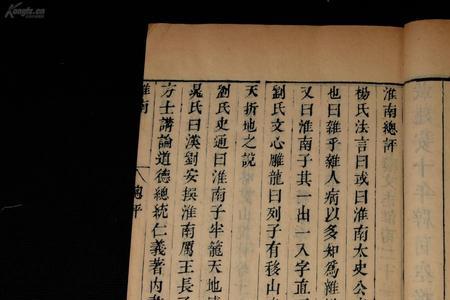 Kongfz.com
淮南總評
楊氏法言曰或曰淮南太史公
也曰雜乎雜人病以多知為雜
又曰淮南子其一出一入字直
劉氏文心雕龍曰列子有移山
天折地之說
劉氏史通曰淮南子牢籠天地
晁氏曰漢劉安撰淮南厲王長子
方士講論道德總統仁義著內
淮南
總評